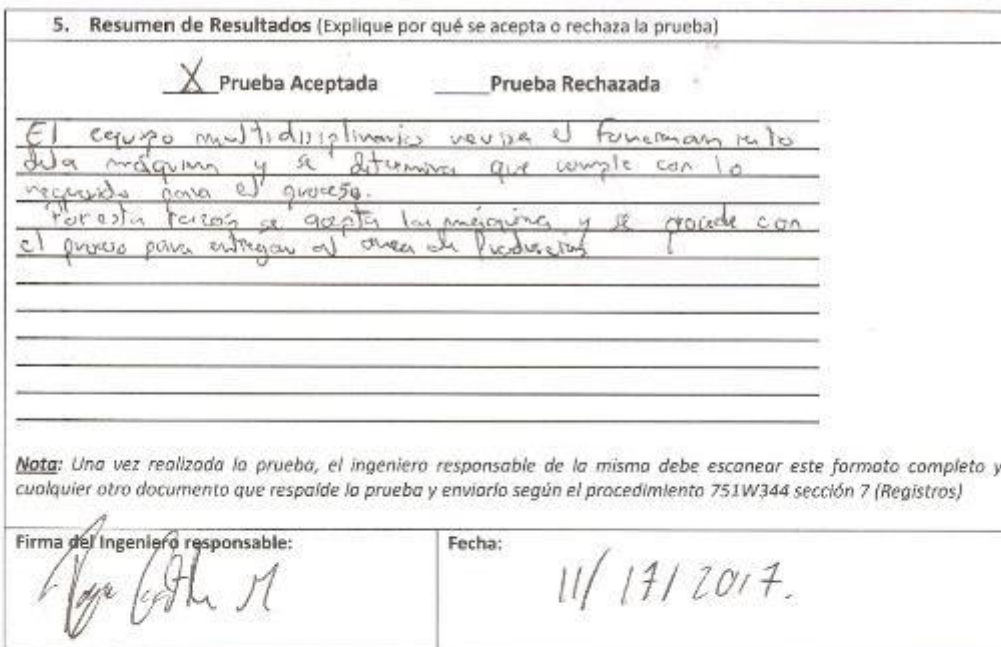 5. Resumen de Resultados (Explique por qué se acepta o rechaza la prueba)
X Prueba Aceptada Prueba Rechazada
El equipo multidisciplinario revisa el funcionamiento
de la máquina y se determina que cumple con lo
requerido para el proceso.
Por esta razón se acepta la máquina y se procede con
el proceso para entregar al area de Producción
Nota: Una vez realizada la prueba, el ingeniero responsable de la misma debe escanear este formato completo y
cualquier otro documento que respalde la prueba y enviarlo según el procedimiento 751W344 sección 7 (Registros)
Firma del Ingeniero responsable: Fecha:
11/17/2017.